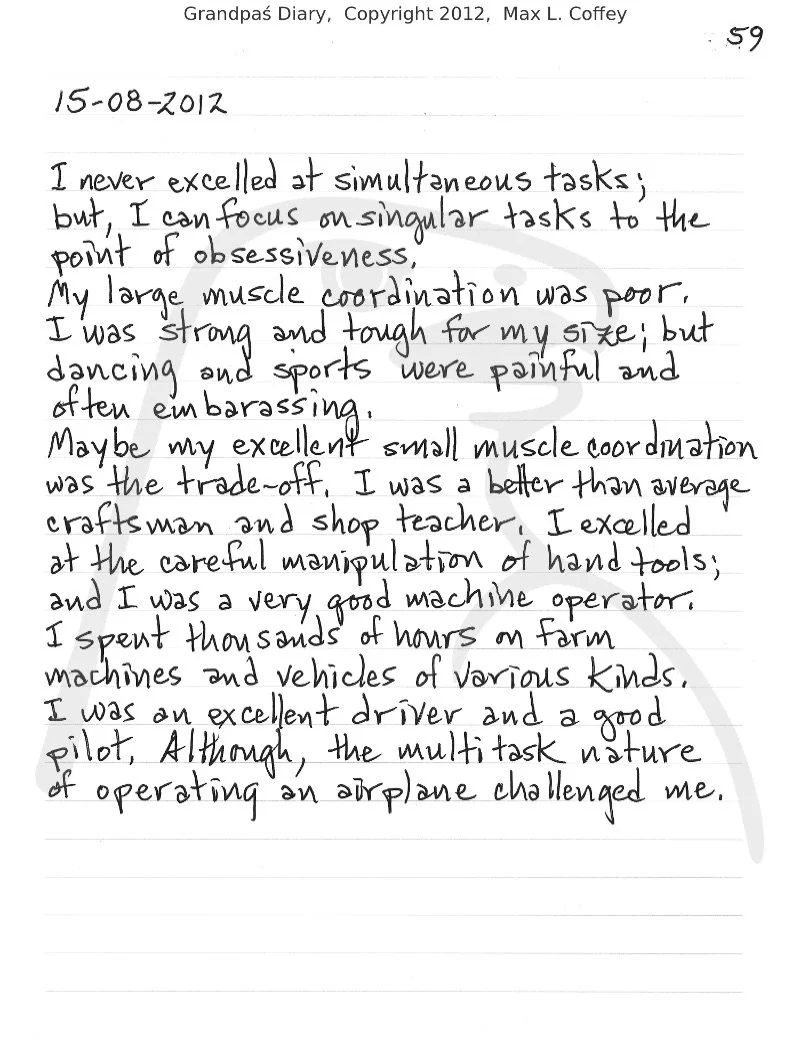 Grandpaś Diary, Copyright 2012, Max L. Coffey
59
15-08-2012
I never excelled at simultaneous tasks;
but, I can focus on singular tasks to the
point of obsessiveness.
My large muscle coordination was poor.
I was strong and tough for my size; but
dancing and sports were painful and
often embarassing.
Maybe my excellent small muscle coordination
was the trade-off. I was a better than average
craftsman and shop teacher. I excelled
at the careful manipulation of hand tools;
and I was a very good machine operator.
I spent thousands of hours on farm
machines and vehicles of various kinds.
I was an excellent driver and a good
pilot. Although, the multitask nature
of operating an airplane challenged me.